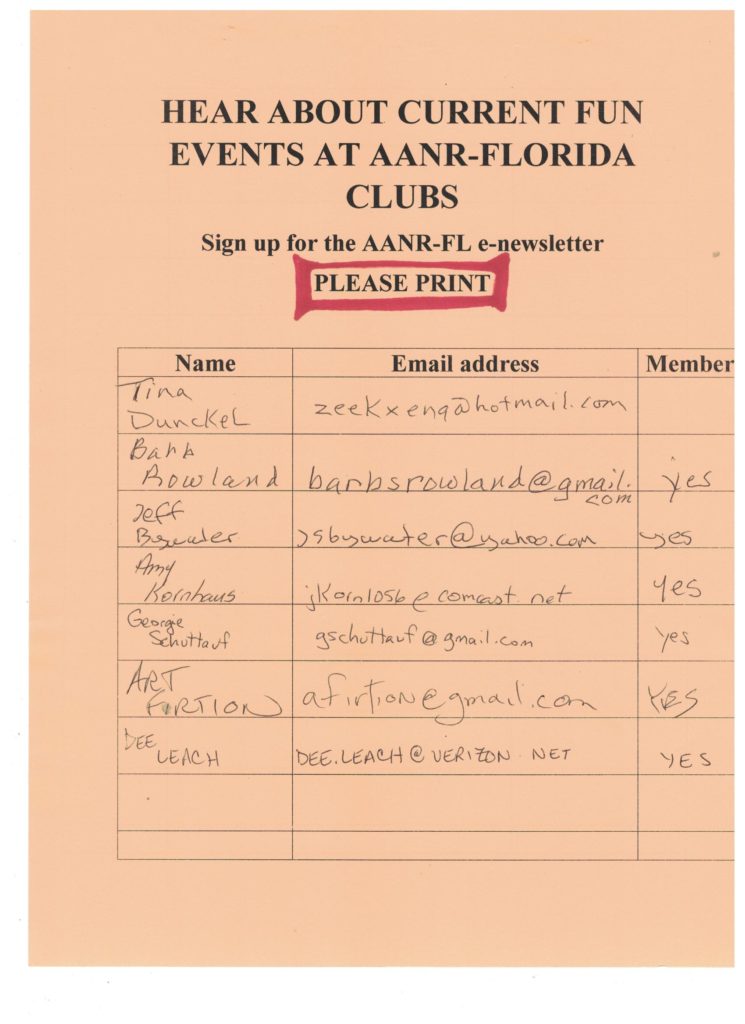 HEAR ABOUT CURRENT FUN
EVENTS AT AANR-FLORIDA
CLUBS
Sign up for the AANR-FL e-newsletter
PLEASE PRINT
Name Email address Member
Tina
Dunckel zeekxeng@hotmail.com
Barb
Rowland barbsrowland@gmail.
com yes
Jeff
Bywater jsbywater@yahoo.com yes
Amy
Kornhaus jkorn1056@comcast.net yes
Georgie
Schuttauf gschuttauf@gmail.com yes
ART
FIRTION afirtion@gmail.com YES
DEE
LEACH DEE.LEACH@VERIZON.NET YES